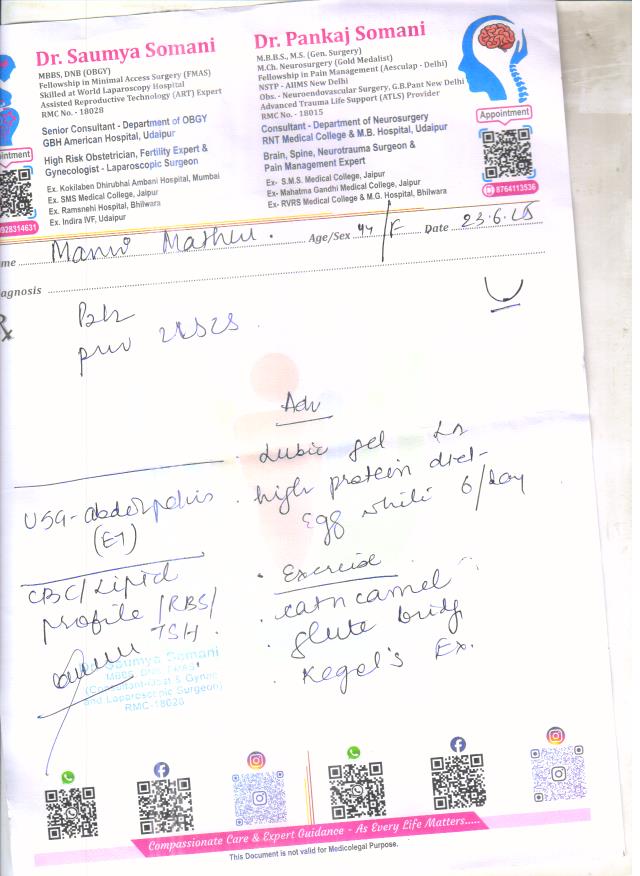 Dr. Saumya Somani
MBBS, DNB (OBGY)
Fellowship in Minimal Access Surgery (FMAS)
Skilled at World Laparoscopy Hospital
Assisted Reproductive Technology (ART) Expert
RMC No. - 18028
Senior Consultant - Department of OBGY
GBH American Hospital, Udaipur
High Risk Obstetrician, Fertility Expert &
Gynecologist - Laparoscopic Surgeon
Ex. Kokilaben Dhirubhai Ambani Hospital, Mumbai
Ex. SMS Medical College, Jaipur
Ex. Ramsnehi Hospital, Bhilwara
Ex. Indira IVF, Udaipur
Dr. Pankaj Somani
M.B.B.S., M.S. (Gen. Surgery)
M.Ch. Neurosurgery (Gold Medalist)
Fellowship in Pain Management (Aesculap - Delhi)
NSTP - AIIMS New Delhi
Obs. - Neuroendovascular Surgery, G.B.Pant New Delhi
Advanced Trauma Life Support (ATLS) Provider
RMC No. - 18015
Consultant - Department of Neurosurgery
RNT Medical College & M.B. Hospital, Udaipur
Brain, Spine, Neurotrauma Surgeon &
Pain Management Expert
Ex- S.M.S. Medical College, Jaipur
Ex- Mahatma Gandhi Medical College, Jaipur
Ex- RVRS Medical College & M.G. Hospital, Bhilwara
ointment
928314631
Appointment
8764113536
me Age/Sex 44/F Date 23.6.25
agnosis
Adv
Lubic gel LA
high protein diet-
Egg white 6/day
USG-
(E1)
CBC/Lipid
Profile/RBS/
TSH.
Exercise
cat n camel
glute bridg
Kegel's Ex.
Dr. Saumya Somani
MBBS, DNB, FMAS
(Consultant-Obst & Gynae
and Laparoscopic Surgeon)
RMC-18028
Compassionate Care & Expert Guidance - As Every Life Matters.....
This Document is not valid for Medicolegal Purpose.